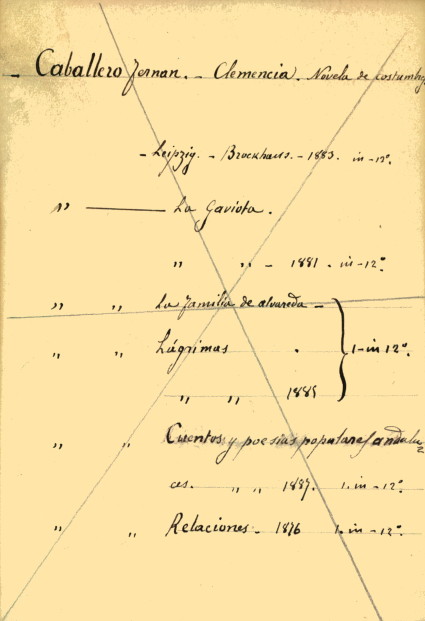 – Caballero Fernan. – Clemencia. Novela de costumbr
– Leipzig. – Brockhaus. – 1883. in-12º.
" ——— La Gaviota.
" " – 1881. in-12º
" " La familia de alvareda –
" " Lágrimas . 1-in 12º.
" " 1885
" " Cuentos y poesias populares andaluz
ces. " " 1887. 1. in-12º.
" " Relaciones – 1876 1. in-12º.